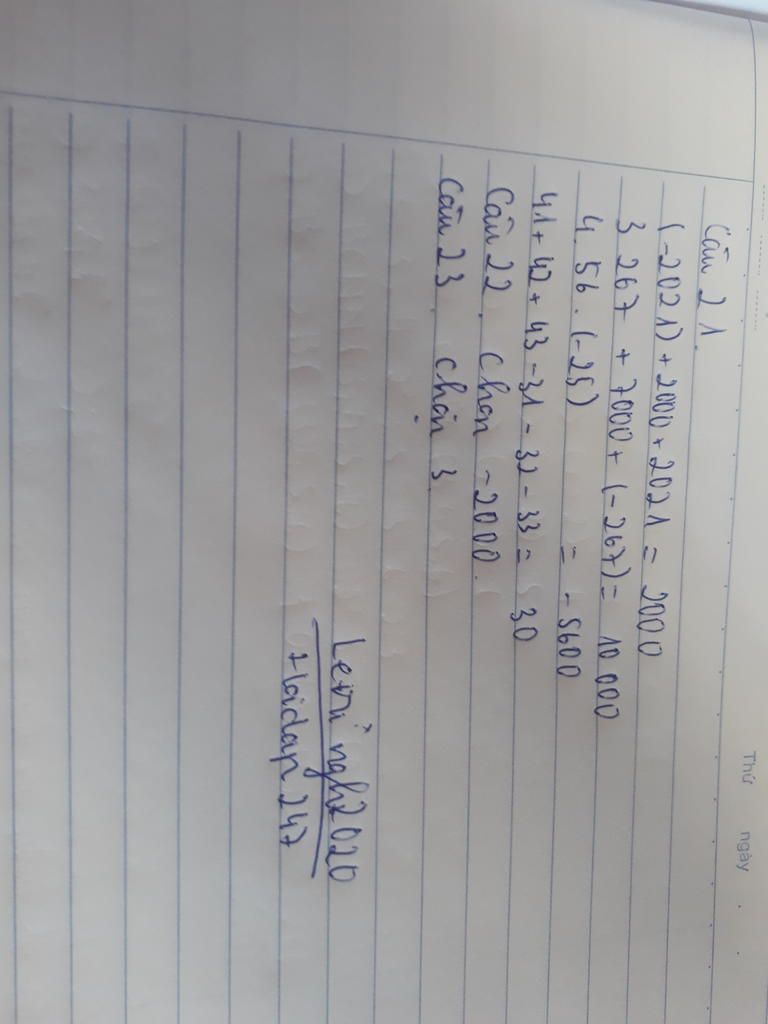 Thứ ngày
Câu 21.
(-2021) + 2000 + 2021 = 2000
3 267 + 7000 + (-267) = 10 000
4. 56. (-25) = -5600
41 + 42 + 43 - 31 - 32 - 33 = 30
Câu 22. chọn -2000.
Câu 23. chọn 3.
+loidap 247